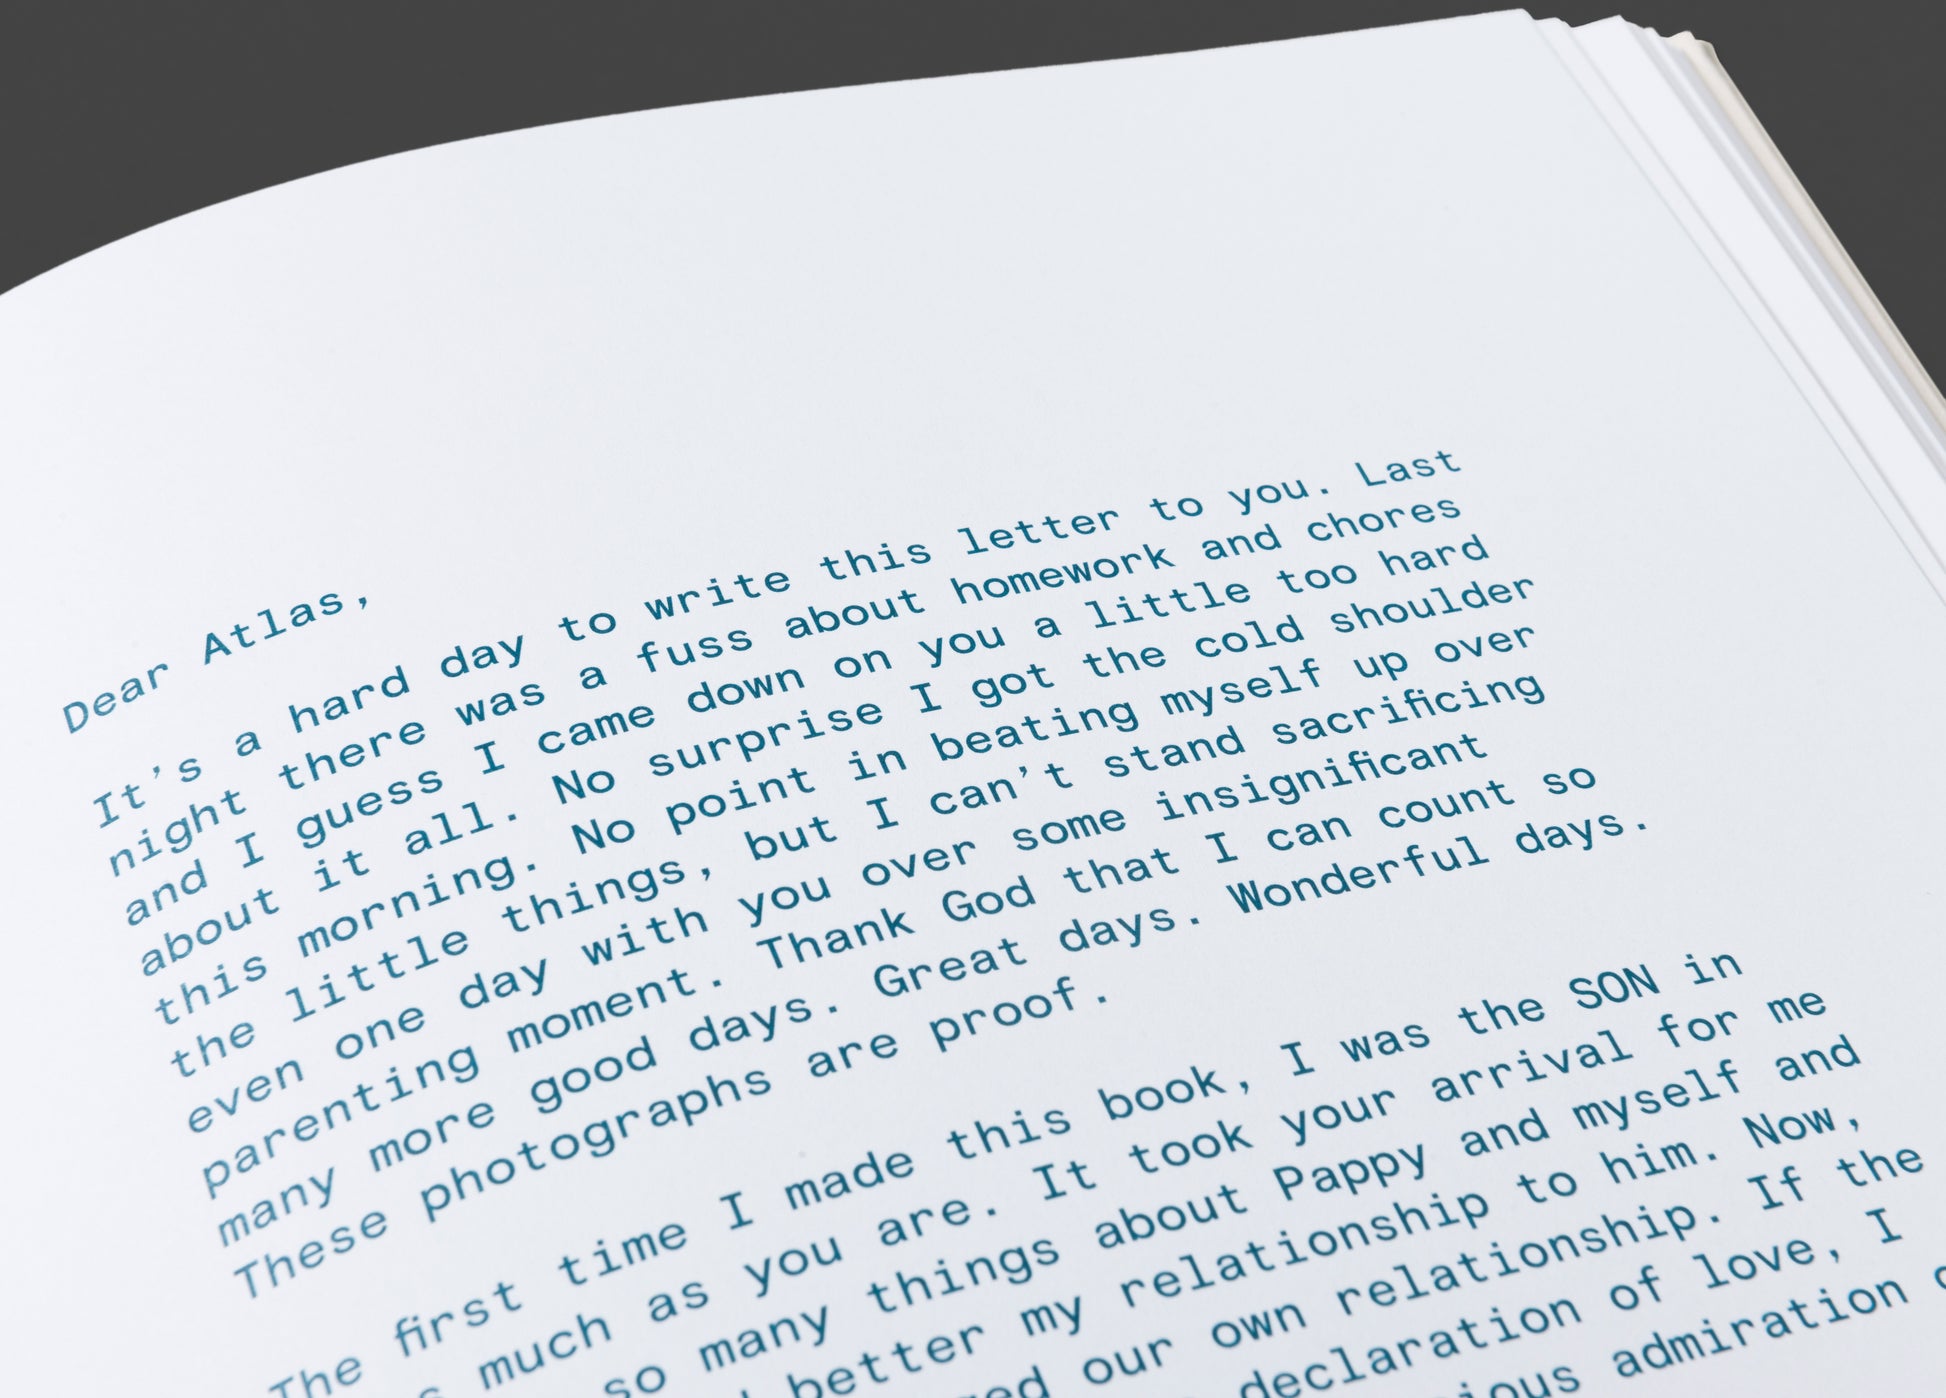 Dear Atlas,
It's a hard day to write this letter to you. Last
night there was a fuss about homework and chores
and I guess I came down on you a little too hard
about it all. No surprise I got the cold shoulder
this morning. No point in beating myself up over
the little things, but I can't stand sacrificing
even one day with you over some insignificant
parenting moment. Thank God that I can count so
many more good days. Great days. Wonderful days.
These photographs are proof.
The first time I made this book, I was the SON in
much as you are. It took your arrival for me
so many things about Pappy and myself and
better my relationship to him. Now,
our own relationship. If the
declaration of love, I
admiration